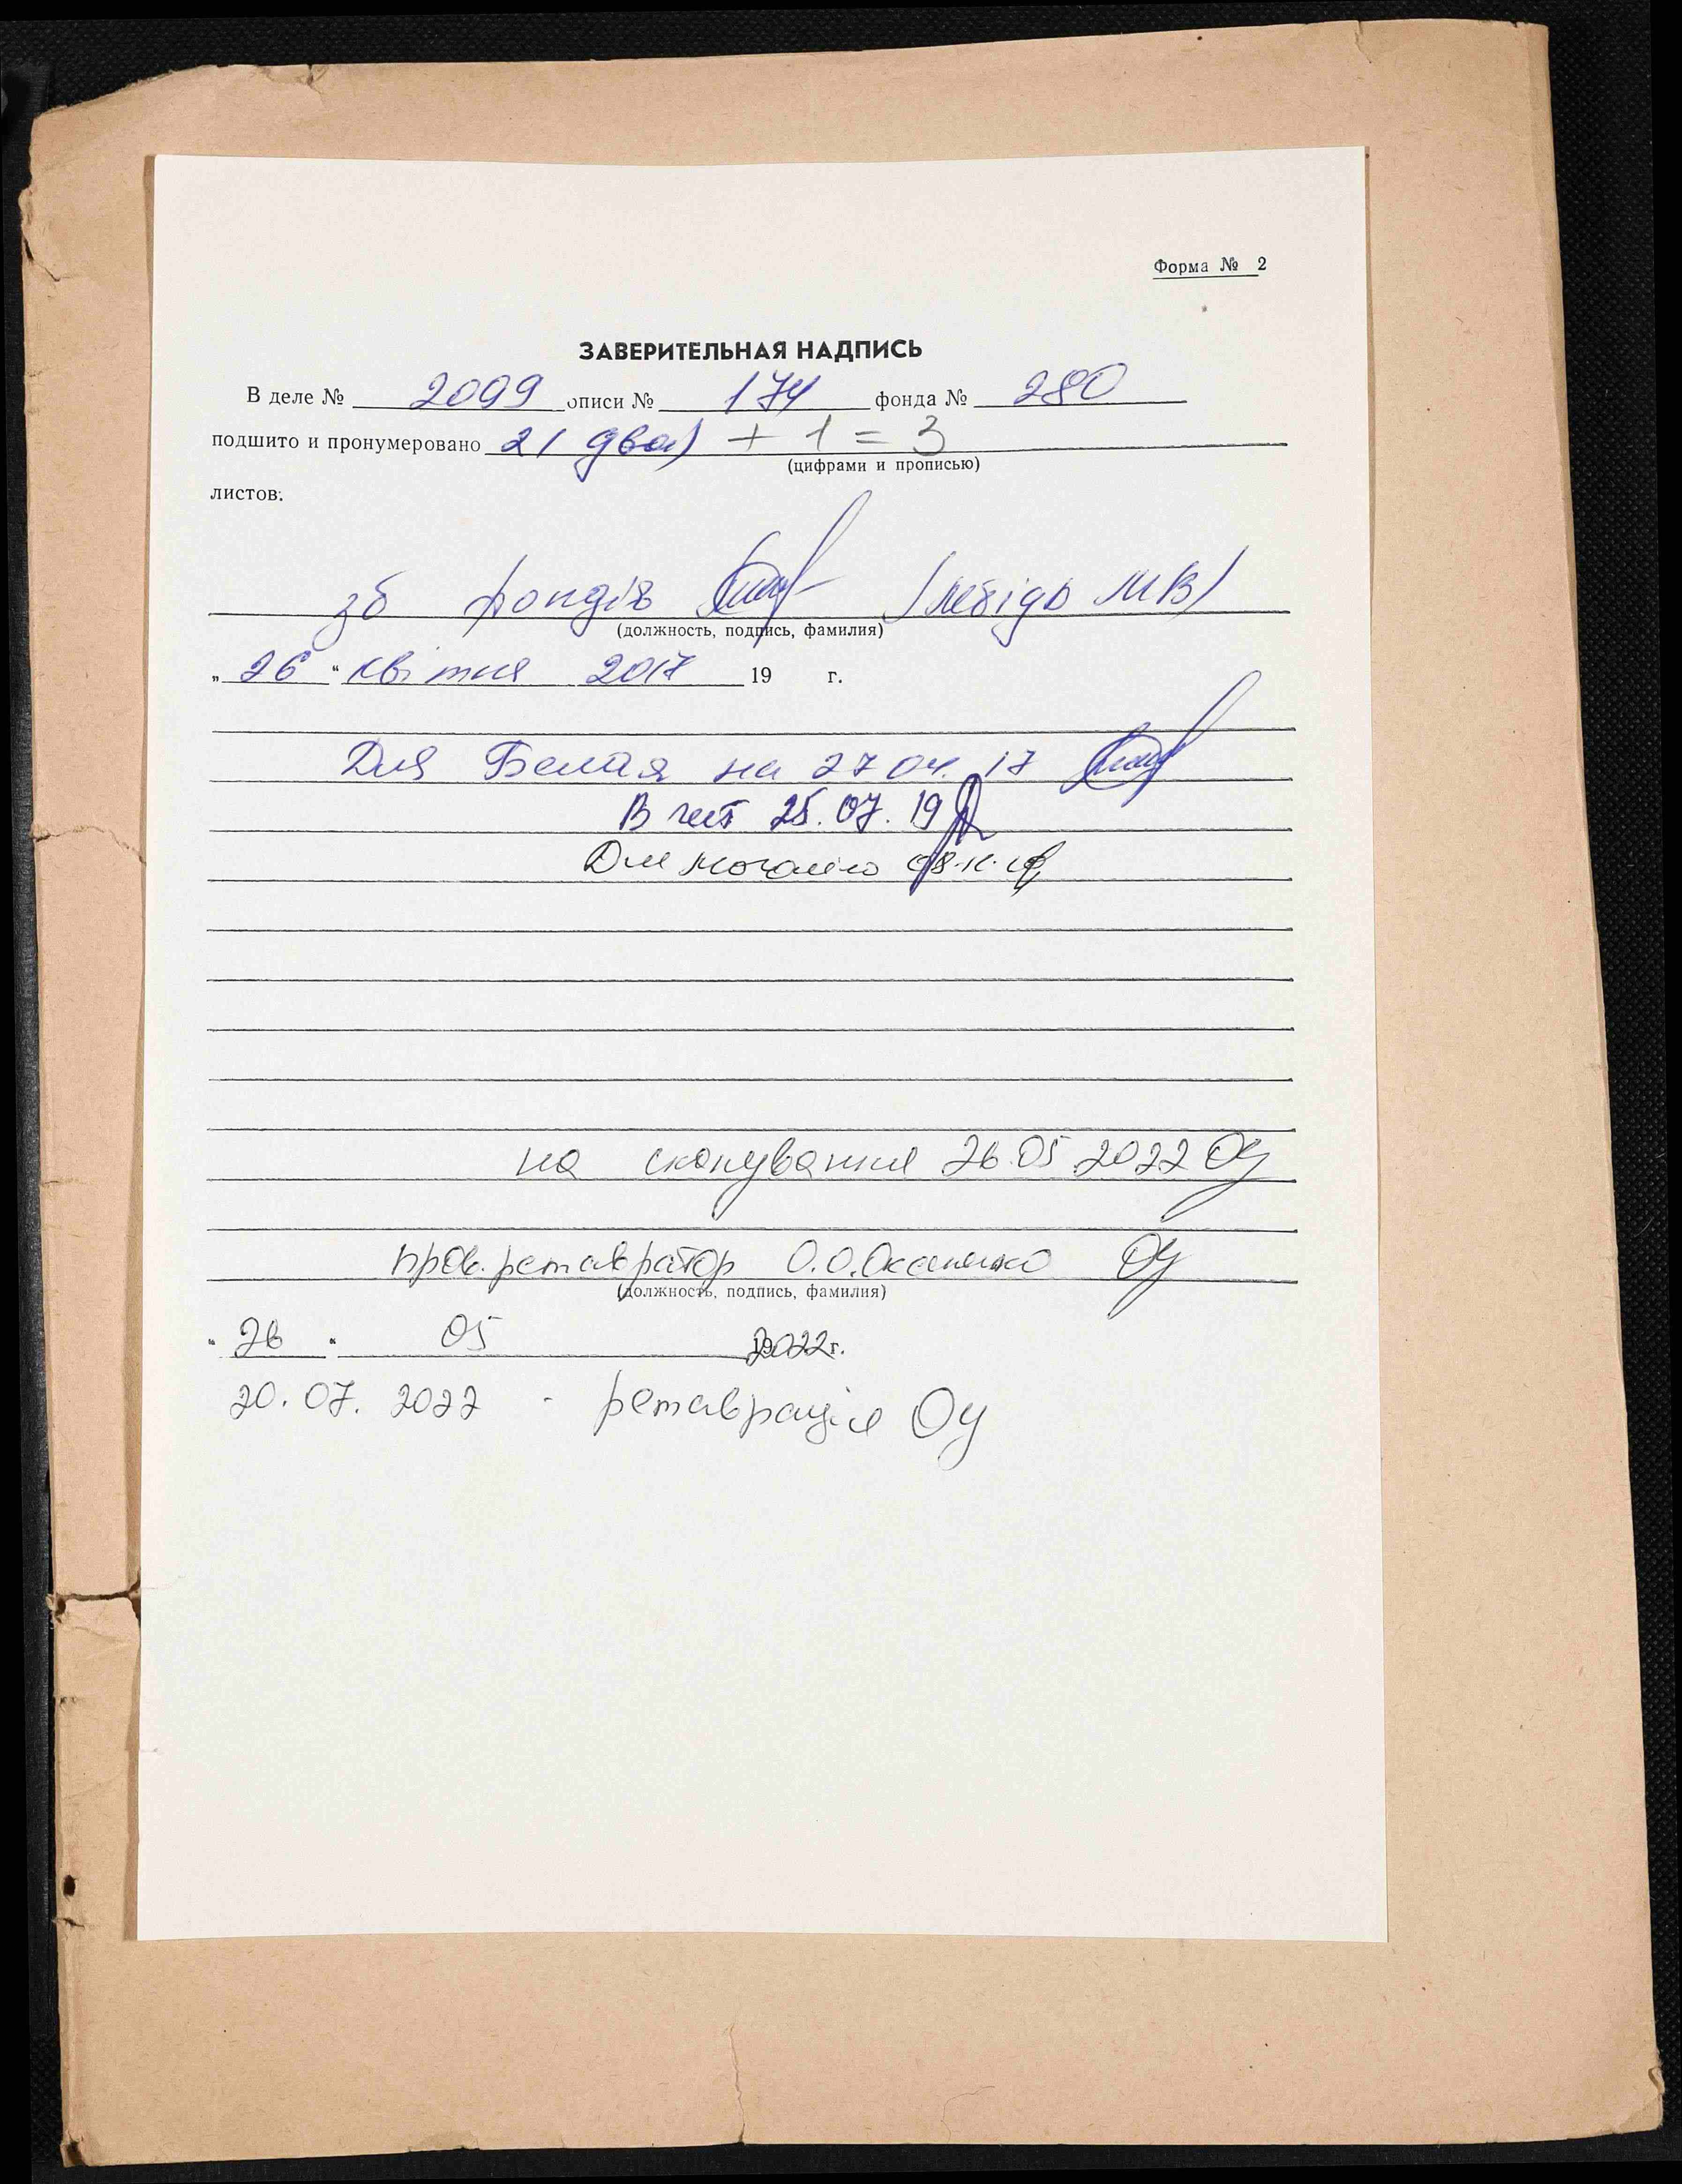 Форма № 2
ЗАВЕРИТЕЛЬНАЯ НАДПИСЬ
В деле № 2099 описи № 174 фонда № 280
подшито и пронумеровано 2 / два) + 1 = 3
(цифрами и прописью)
листов.
зб фондів /Лебідь МВ/
(должность, подпись, фамилия)
„ 26 “ квітня 2017 19 г.
Для Белая на 27 04. 17
В чит 25. 07. 19
Для
на сканування 26.05.2022
пров. реставратор О.О.
(должность, подпись, фамилия)
„ 26 “ 05 2022г.
20. 07. 2022 - реставрація